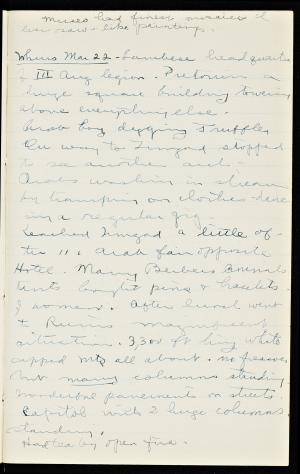 Museo had finest mosaics I
ever saw - like paintings.
Thurs Mar 22 - Lambese headquarters
of III Aug legion. Pretorium a
huge square building towering
above everything else.
Arab boy digging truffles
On way to Timgad stopped
to see another arch.
Arabs washing in stream
by tramping on clothes danc
ing a regular jig.
Reached Timgad a little af-
ter 11. Arab fair opposite
Hotel. Many Berbers animals
tents bought pins & bracelets
of women. After lunch went
to Ruins magnificent
situation. 3,300 ft big white
capped mts all about. no frescoes
but many columns standing
wonderful pavement on streets.
Capitol with 2 huge columns
standing.
Had tea by open fire.